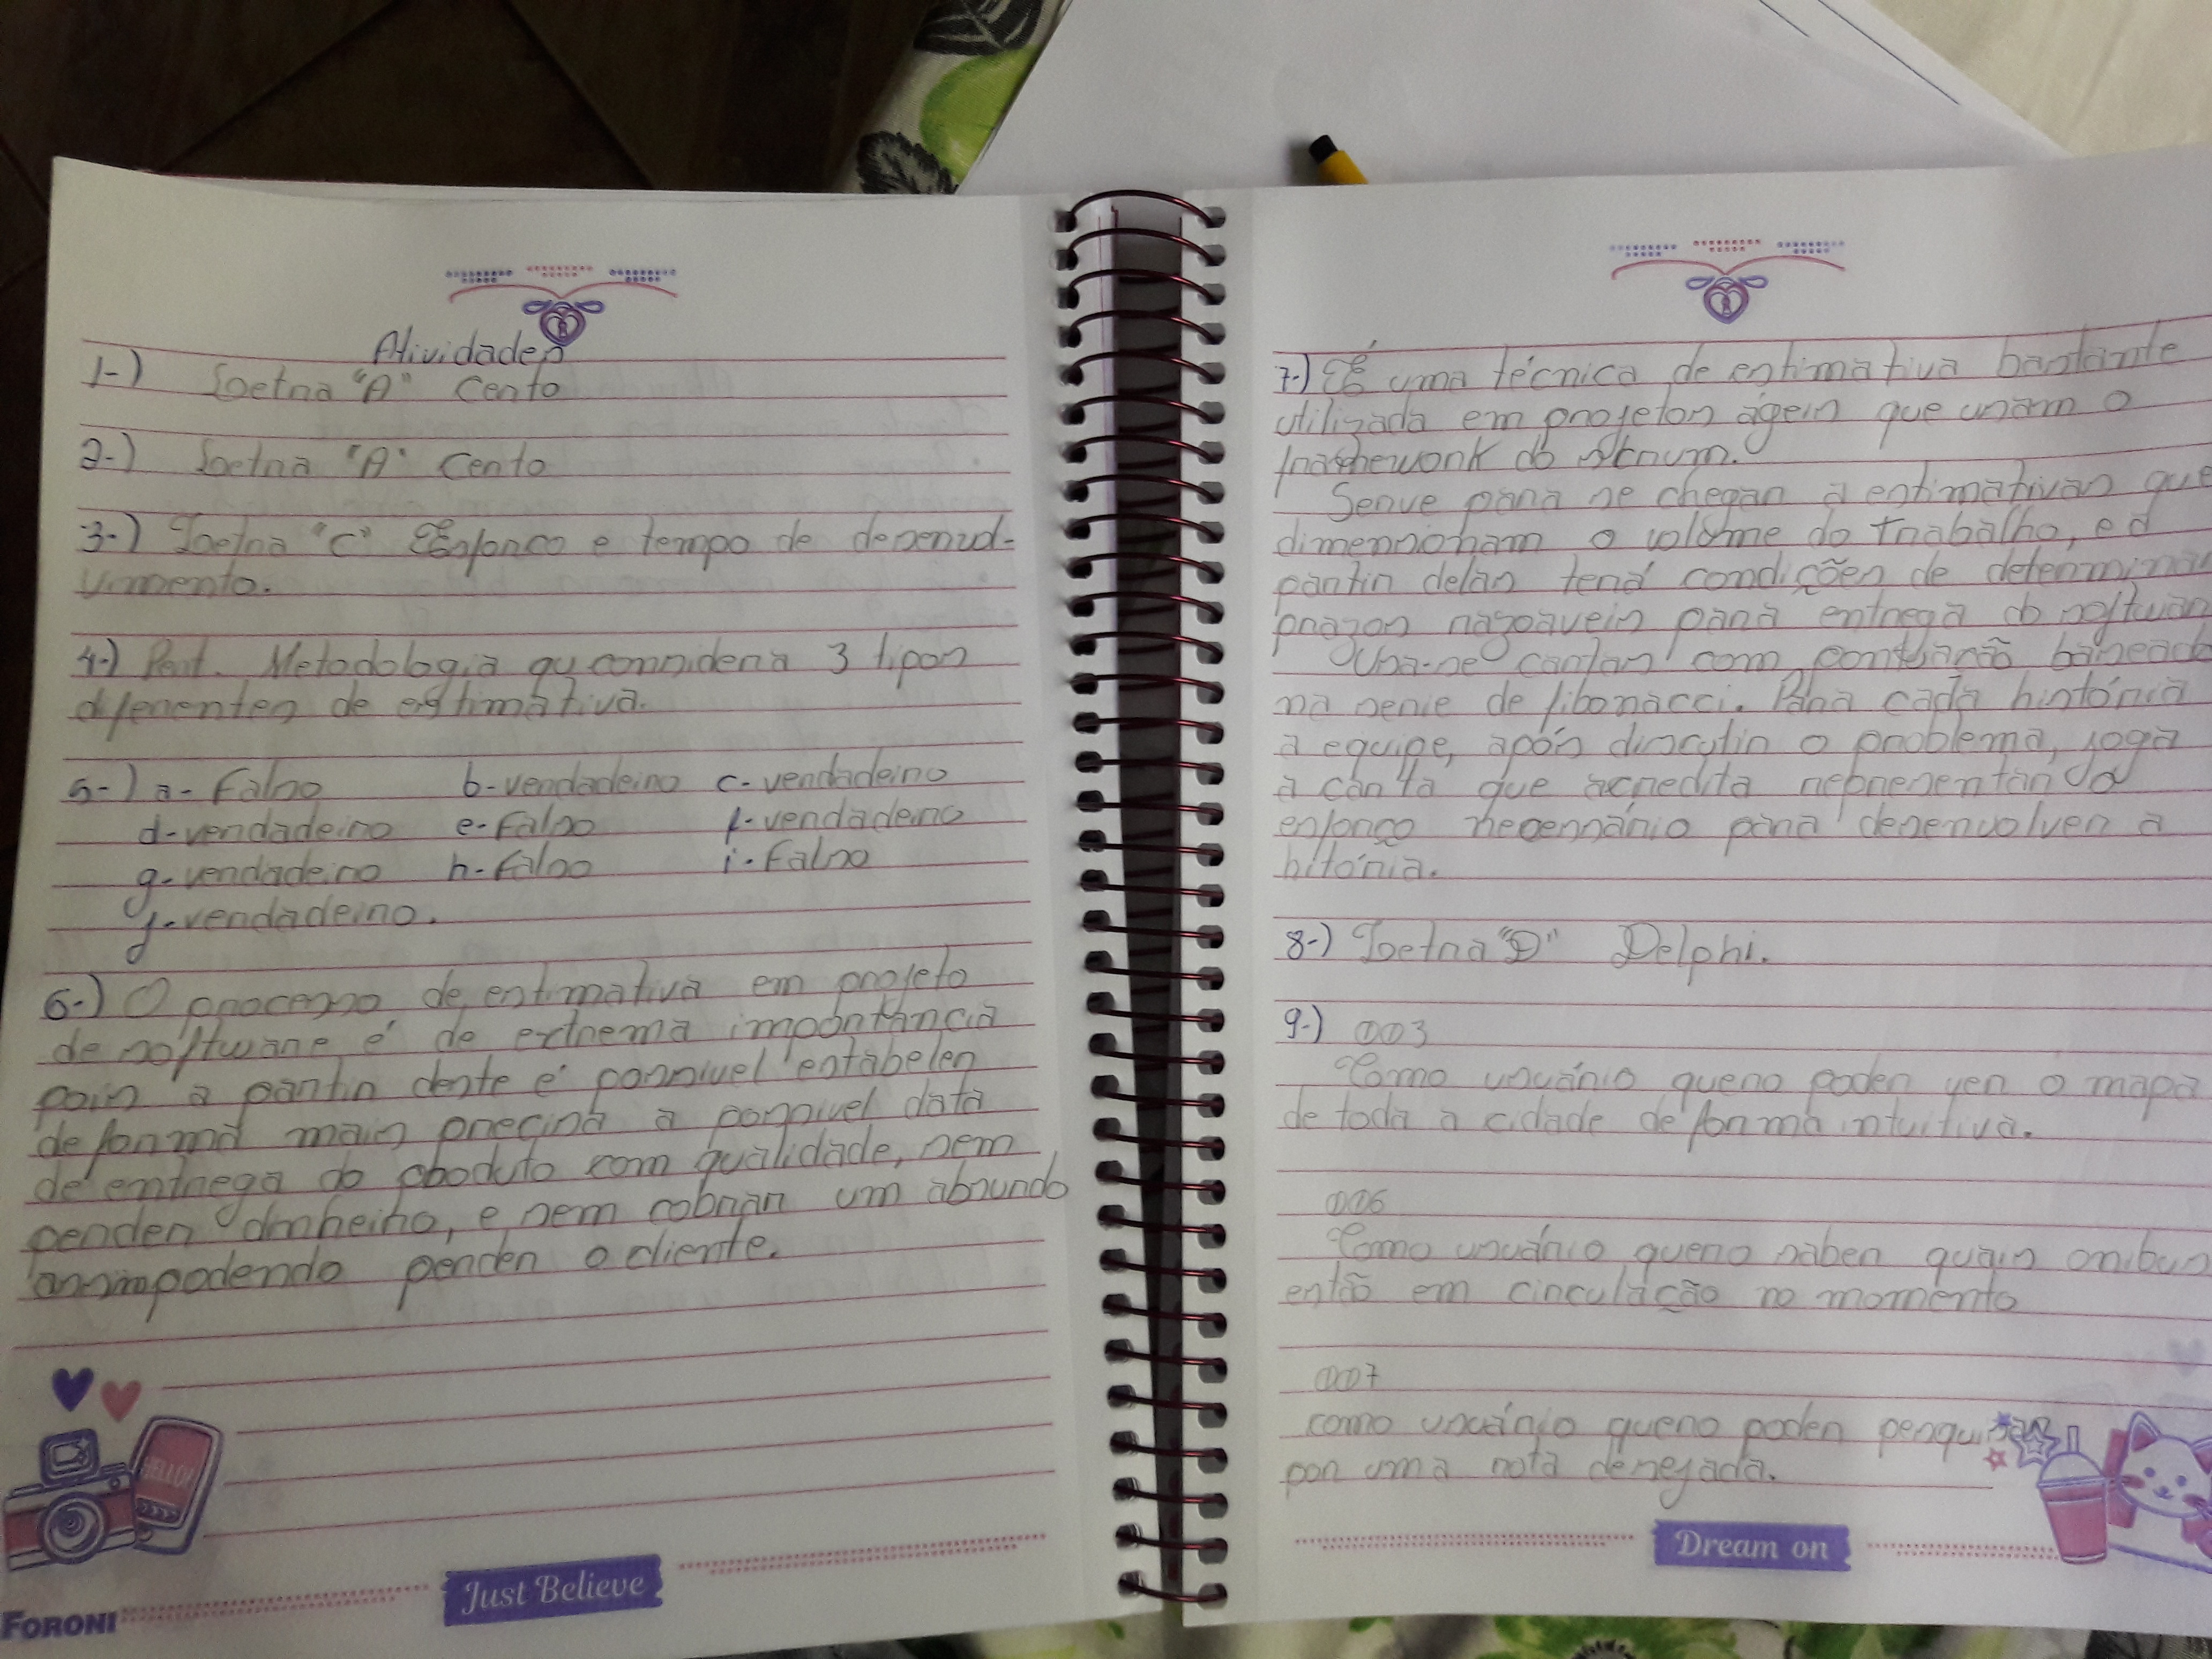 Atividades
1-) Letra "A" Certo
2-) Letra "A" Certo
3-) Letra "C" Esforço e tempo de desenvol-
vimento.
4-) Pert. Metodologia qu considera 3 tipos
diferentes de estimativa.
5-) a- Falso b- verdadeiro c- verdadeiro
d- verdadeiro e- Falso f- verdadeiro
g- verdadeiro h- Falso i- Falso
j- verdadeiro.
6-) O processo de estimativa em projeto
de software é de extrema importância
pois a partir deste é possivel estabeler
de forma mais precisa a possivel data
de entrega do produto com qualidade, sem
perder dinheiro, e sem cobrar um absurdo
assim podendo perder o cliente.
HELLO!
Just Believe
FORONI
7-) É uma técnica de estimativa bastante
utilizada em projetos ágeis que usam o
framework do Scrum.
Serve para se chegar a estimativas que
dimensionam o volume do trabalho, e a
partir delas terá condições de determinar
prazos razoaveis para entrega do
Usa-se cartas com pontuação
na serie de fibonacci. Para cada história
a equipe, após discutir o problema, joga
a carta que acredita representar o
esforço necessário para desenvolver a
hitória.
8-) Letra "D" Delphi.
9-) 003
Como usuário quero poder ver o mapa
de toda a cidade de forma intuitiva.
006
Como usuário quero saber quais onibus
estão em circulação no momento
007
como usuário quero poder pesquisar
por uma rota desejada.
Dream on